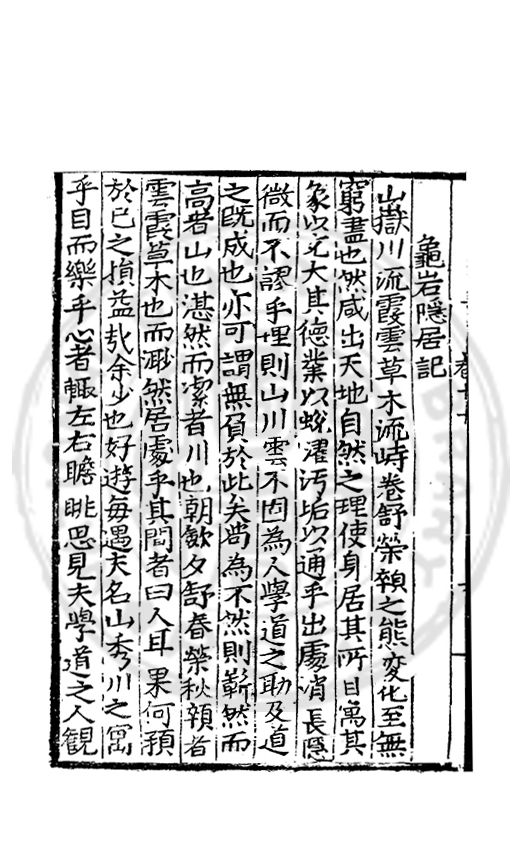 龜岩隱居記
山嶽川流霞雲草木流峙卷舒榮頴之態變化至無
窮盡也然咸出天地自然之理使身居其所目寓其
象以充大其德業以蛻濯汚垢以通乎出處消長隱
微而不謬乎理則山川雲不因為人學道之助及道
之旣成也亦可謂無負於此矣尚為不然則嶄然而
高者山也湛然而潔者川也朝歛夕舒春榮秋頴者
雲霞草木也而漻然居處乎其間者曰人耳果何預
於已之損益㢤余少也好遊每遇夫名山秀川之寓
乎目而樂乎心者輒左右瞻眺思見夫學道之人観